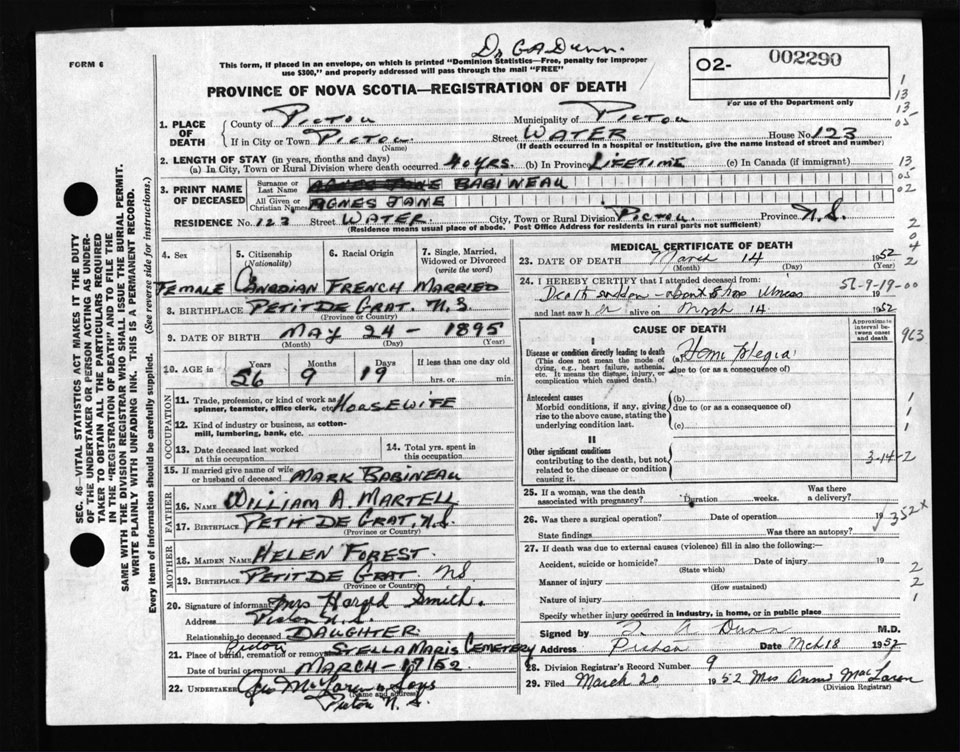 Dr G A Dunn.
FORM 6
This form, if placed in an envelope, on which is printed "Dominion Statistics—Free, penalty for improper
use $300," and properly addressed will pass through the mail "FREE"
O2- 002290
For use of the Department only
PROVINCE OF NOVA SCOTIA—REGISTRATION OF DEATH
1. PLACE OF DEATH
County of Pictou Municipality of Pictou
If in City or Town Pictou Street WATER House No. 123
(Name) (If death occurred in a hospital or Institution, give the name instead of street and number)
2. LENGTH OF STAY (in years, months and days)
(a) In City, Town or Rural Division where death occurred 40 yrs. (b) In Province LIFETIME (c) In Canada (if immigrant)
3. PRINT NAME OF DECEASED
Surname or Last Name BABINEAU
All Given or Christian Names AGNES JANE
RESIDENCE No. 123 Street WATER City, Town or Rural Division Pictou Province N.S.
(Residence means usual place of abode. Post Office Address for residents in rural parts not sufficient)
4. Sex 5. Citizenship (Nationality) 6. Racial Origin 7. Single, Married, Widowed or Divorced (write the word)
FEMALE CANADIAN FRENCH MARRIED
8. BIRTHPLACE PETIT DE GRAT. N.S
(Province or Country)
9. DATE OF BIRTH MAY 24 - 1895
(Month) (Day) (Year)
10. AGE in Years 56 Months 9 Days 19 If less than one day old
hrs. or min.
OCCUPATION
11. Trade, profession, or kind of work as
spinner, teamster, office clerk, etc. HOUSEWIFE
12. Kind of industry or business, as cotton-
mill, lumbering, bank, etc.
13. Date deceased last worked at this occupation 14. Total yrs. spent in this occupation
15. If married give name of wife
or husband of deceased MARK BABINEAU
FATHER
16. Name WILLIAM A. MARTELL
17. Birthplace PETIT DE GRAT, N.S.
(Province or Country)
MOTHER
18. Maiden Name HELEN FOREST.
19. Birthplace PETIT DE GRAT NS.
(Province or Country)
20. Signature of informant Mrs Harold Smith.
Address Pictou N.S.
Relationship to deceased DAUGHTER
21. Place of burial, cremation or removal Pictou STELLA MARIS CEMETERY
Date of burial or removal MARCH - 17/52
22. Undertaker Geo McLaren & Sons
(Name and address)
Pictou N.S.
MEDICAL CERTIFICATE OF DEATH
23. DATE OF DEATH March 14 1952
(Month) (Day) (Year)
24. I HEREBY CERTIFY that I attended deceased from:
Death sudden - about hrs illness 19
56-9-19-00
and last saw alive on March 14 1952
CAUSE OF DEATH
Approximate interval between onset and death
I
Disease or condition directly leading to death
(This does not mean the mode of dying, e.g., heart failure, asthenia, etc. It means the disease, injury, or complication which caused death.)
(a) Hemiplegia
due to (or as a consequence of)
Antecedent causes
Morbid conditions, if any, giving rise to the above cause, stating the underlying condition last.
(b)
due to (or as a consequence of)
(c)
II
Other significant conditions
contributing to the death, but not related to the disease or condition causing it.
3-14-2
25. If a woman, was the death associated with pregnancy? Duration weeks. Was there a delivery?
26. Was there a surgical operation? Date of operation 19
State findings Was there an autopsy?
352x
27. If death was due to external causes (violence) fill in also the following:—
Accident, suicide or homicide? Date of injury 19
(State which)
Manner of injury
(How sustained)
Nature of injury
Specify whether injury occurred in industry, in home, or in public place
Signed by G. A. Dunn M.D.
Address Pictou Date Mch 18 1952
28. Division Registrar's Record Number 9
29. Filed March 20 1952 Mrs Annie MacLaren
(Division Registrar)
SEC. 46—VITAL STATISTICS ACT MAKES IT THE DUTY
OF THE UNDERTAKER OR PERSON ACTING AS UNDER-
TAKER TO OBTAIN ALL THE PARTICULARS REQUIRED
IN THE "REGISTRATION OF DEATH" AND TO FILE THE
SAME WITH THE DIVISION REGISTRAR WHO SHALL ISSUE THE BURIAL PERMIT.
WRITE PLAINLY WITH UNFADING INK. THIS IS A PERMANENT RECORD.
Every item of information should be carefully supplied. (See reverse side for instructions.)
1
13
13
05
13
05
02
2
0
4
2
963
1
1
1
2
2
1